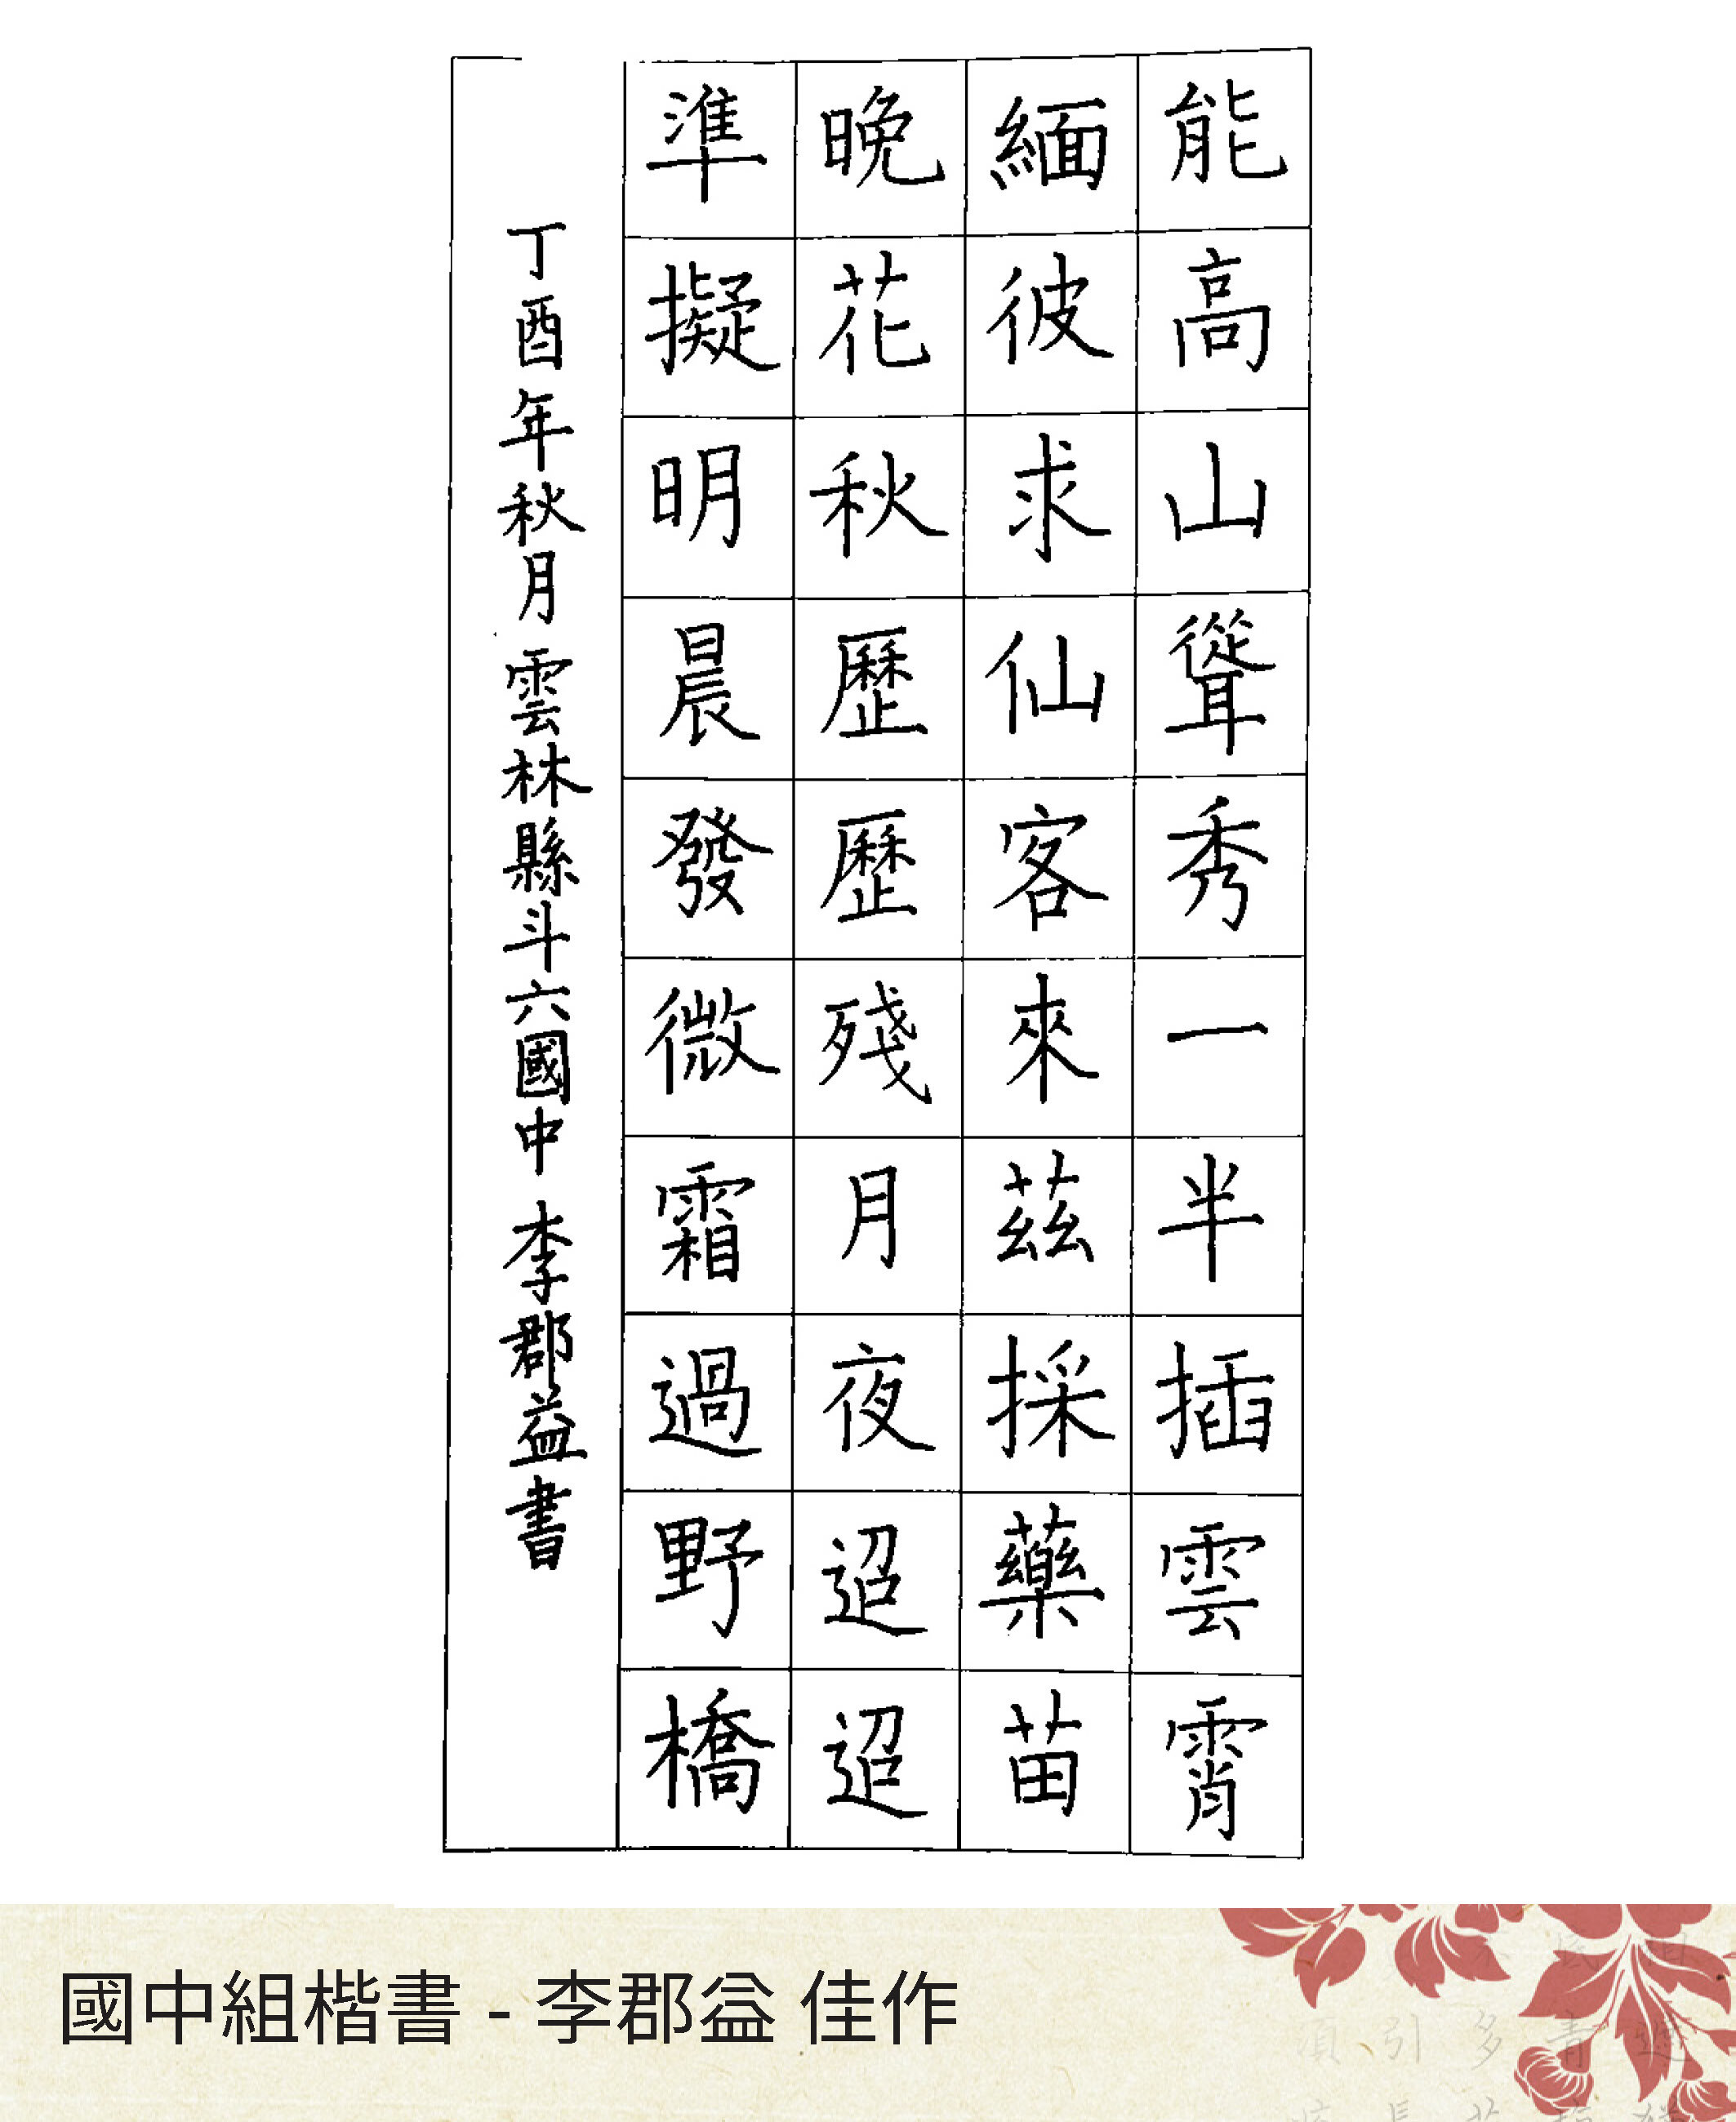 能高山聳秀一半插雲霄
緬彼求仙客來茲採藥苗
晚花秋歷歷殘月夜迢迢
準擬明晨發微霜過野橋
丁酉年秋月雲林縣斗六國中李郡益書
國中組楷書 - 李郡益 佳作